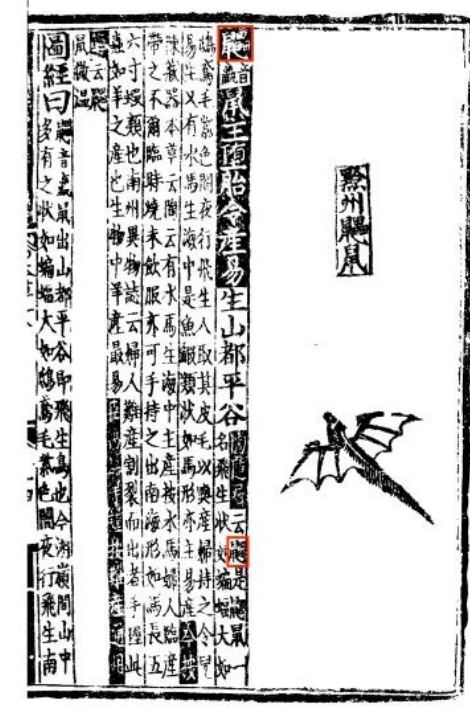 黔州鼺鼠
鼺鼠主墮胎令產易生山都平谷
陶隱居云鼺是鼯鼠一
名飛生狀如蝙蝠大如
鴟鳶毛紫色闇夜行飛生人取其皮毛以與產婦持之令兒
易生又有水馬生海中是魚蝦類狀如馬形亦主易產今按
陳藏器本草云陶云有水馬生海中主產按水馬婦人臨產
帶之不爾臨時燒末飲服亦可手持之出南海形如馬長五
六寸蝦類也南州異物誌云婦人難產割裂而出者手握此
蟲如羊之產也生物中羊產最易臣禹錫等謹按難產通用
藥云鼺
鼠微溫
圖經曰
鼺音壘鼠出山都平谷即飛生鳥也今湖嶺間山中
多有之狀如蝙蝠大如鴟鳶毛紫色闇夜行飛生南